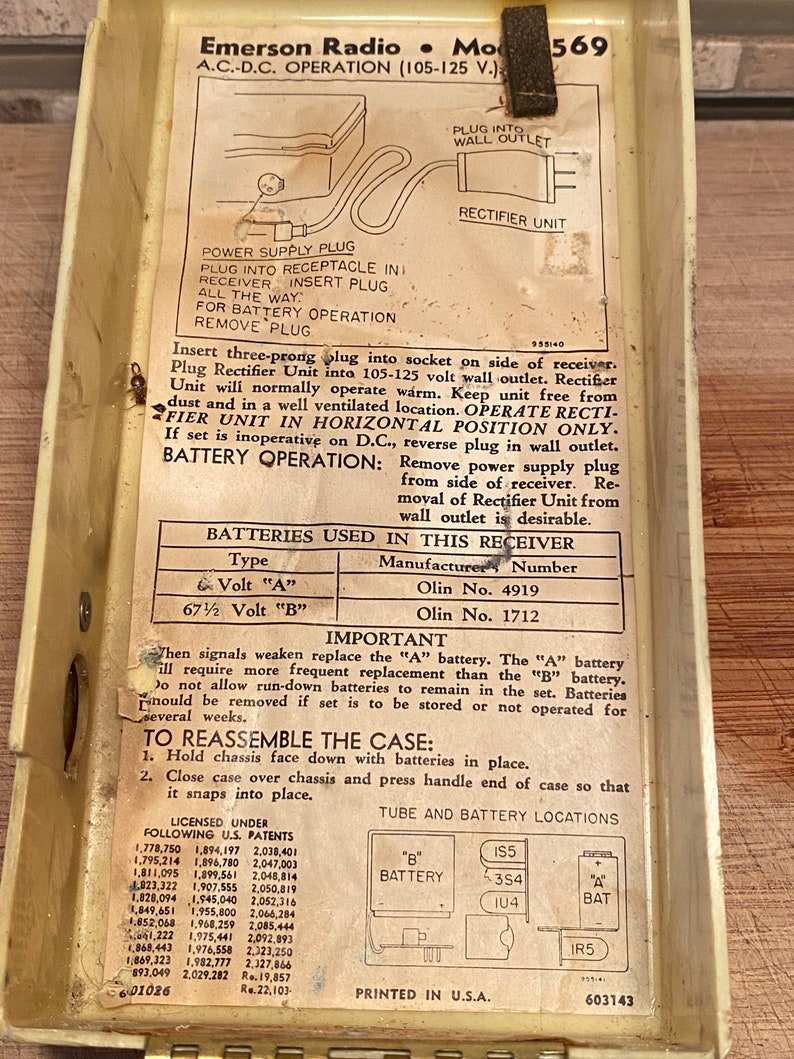 Emerson Radio • Mo 569
A.C.-D.C. OPERATION (105-125 V.):
PLUG INTO
WALL OUTLET
RECTIFIER UNIT
POWER SUPPLY PLUG
PLUG INTO RECEPTACLE IN
RECEIVER. INSERT PLUG
ALL THE WAY.
FOR BATTERY OPERATION
REMOVE PLUG
955140
Insert three-prong plug into socket on side of receiver.
Plug Rectifier Unit into 105-125 volt wall outlet. Rectifier
Unit will normally operate warm. Keep unit free from
dust and in a well ventilated location. OPERATE RECTI-
FIER UNIT IN HORIZONTAL POSITION ONLY.
If set is inoperative on D.C., reverse plug in wall outlet.
BATTERY OPERATION: Remove power supply plug
from side of receiver. Re-
moval of Rectifier Unit from
wall outlet is desirable.
BATTERIES USED IN THIS RECEIVER
Type Manufacturer's Number
Volt "A" Olin No. 4919
67½ Volt "B" Olin No. 1712
IMPORTANT
When signals weaken replace the "A" battery. The "A" battery
will require more frequent replacement than the "B" battery.
Do not allow run-down batteries to remain in the set. Batteries
should be removed if set is to be stored or not operated for
several weeks.
TO REASSEMBLE THE CASE:
1. Hold chassis face down with batteries in place.
2. Close case over chassis and press handle end of case so that
it snaps into place.
LICENSED UNDER
FOLLOWING U.S. PATENTS
1,778,750 1,894,197 2,038,401
1,795,214 1,896,780 2,047,003
1,811,095 1,899,561 2,048,814
1,823,322 1,907,555 2,050,819
1,828,094 1,945,040 2,052,316
1,849,651 1,955,800 2,066,284
1,852,068 1,968,259 2,085,444
1,975,441 2,092,893
1,868,443 1,976,558 2,323,250
1,869,323 1,982,777 2,327,866
893,049 2,029,282 Re.19,857
Re.22,103
601026
TUBE AND BATTERY LOCATIONS
"B"
BATTERY
1S5
3S4
1U4
"A"
BAT
1R5
PRINTED IN U.S.A.
603143